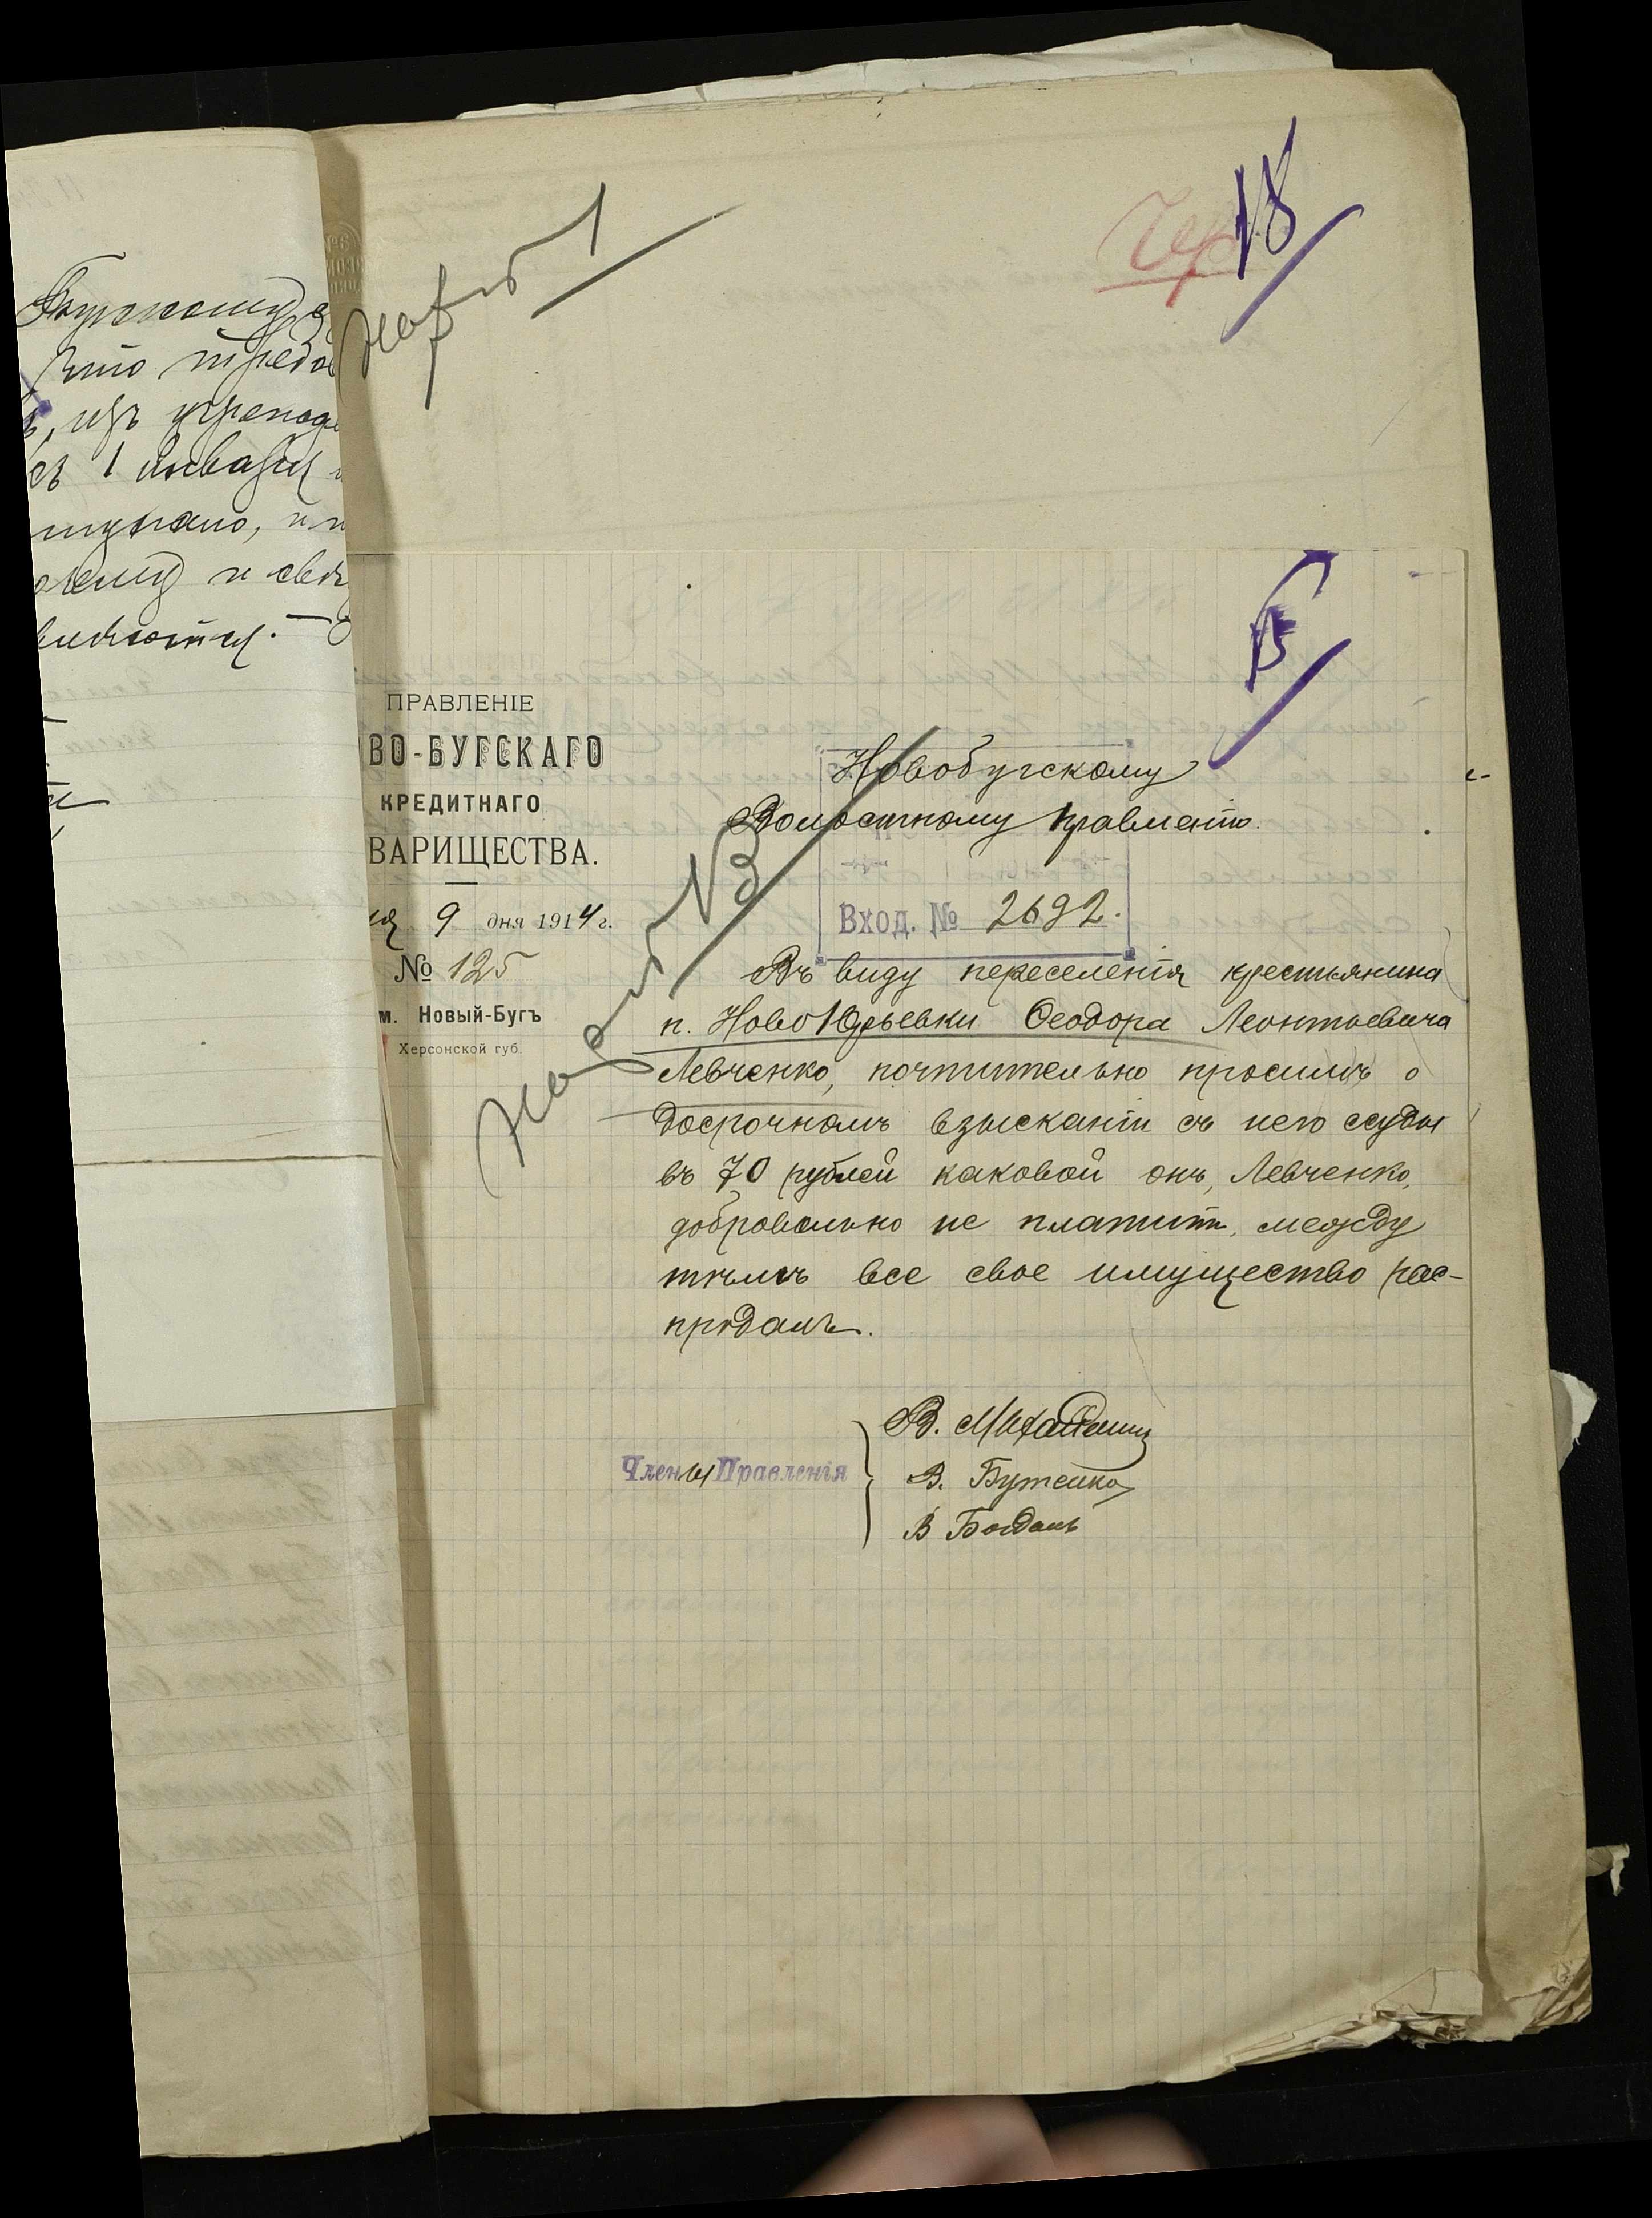 Бугскому
что требов
, изъ
съ 1 января
18
ПРАВЛЕНІЕ
ВО-БУГСКАГО
КРЕДИТНАГО
ВАРИЩЕСТВА.
9 дня 1914 г.
№ 125
м. Новый-Бугъ
Херсонской губ.
Новобугскому
Волостному Правленію.
Вход. № 2692.
Въ виду переселенія крестьянина
п. НовоЮрьевки Ѳеодора Леонтьевича
Левченко, почтительно просимъ о
досрочномъ взысканіи съ него ссуды
въ 70 рублей каковой онъ, Левченко,
добровольно не платитъ, между
тѣмъ все свое имущество рас-
продалъ.
Члены Правленія
В.
В. Бутенко
В Богданъ